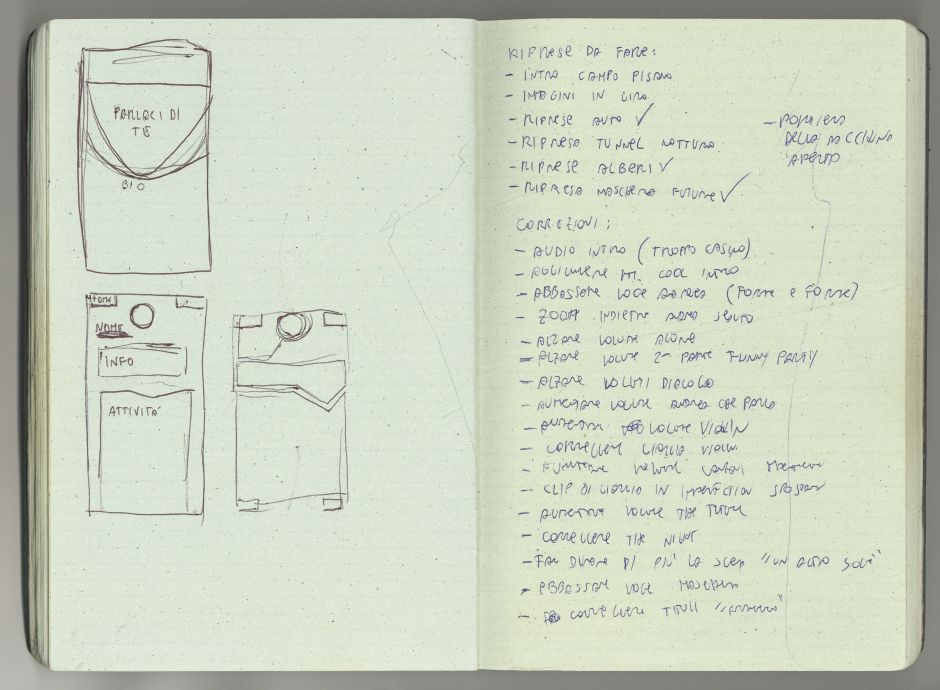 PARLACI DI
TE
BIO
HOME
NOME
INFO
ATTIVITÀ
RIPRESE DA FARE:
- INTRO CAMPO PISANO
- IMAGINI IN GIRO
- RIPRESE AUTO ✓
- RIPRESA TUNNEL NOTTURNA
- RIPRESE ALBERI ✓
- RIPRESA MASCHERA FUTURE ✓
- POMPIERS
DELLA MACCHINA
APERTO
CORREZIONI:
- AUDIO INTRO (TROPPO CASINO)
- AGGIUNGERE INTRO
- ABBASSARE VOCE ANDREA (FORSE E FORSE)
- ZOOM INDIETRO ANDREA SEDUTO
- ALZARE VOLUME
- ALZARE VOLUME 2ª PARTE FUNNY PARTY
- ALZARE VOLUMI DIALOGO
- AUMENTARE VOLUME ANDREA CHE PARLA
- AUMENTARE VOLUME VIOLIN
- CORREGGERE GIALLO VIOLIN
- AUMENTARE VOLUME
- CLIP DI GIORGIO IN IMPERFECTION SPOSTARE
- AUMENTARE VOLUME THE TUTOR
- CORREGGERE THE NIGHT
- FAR DURARE DI PIÙ LA SCENA "UN ALTRO SOLE"
- ABBASSARE VOCE MASCHERA
- CORREGGERE TITOLI